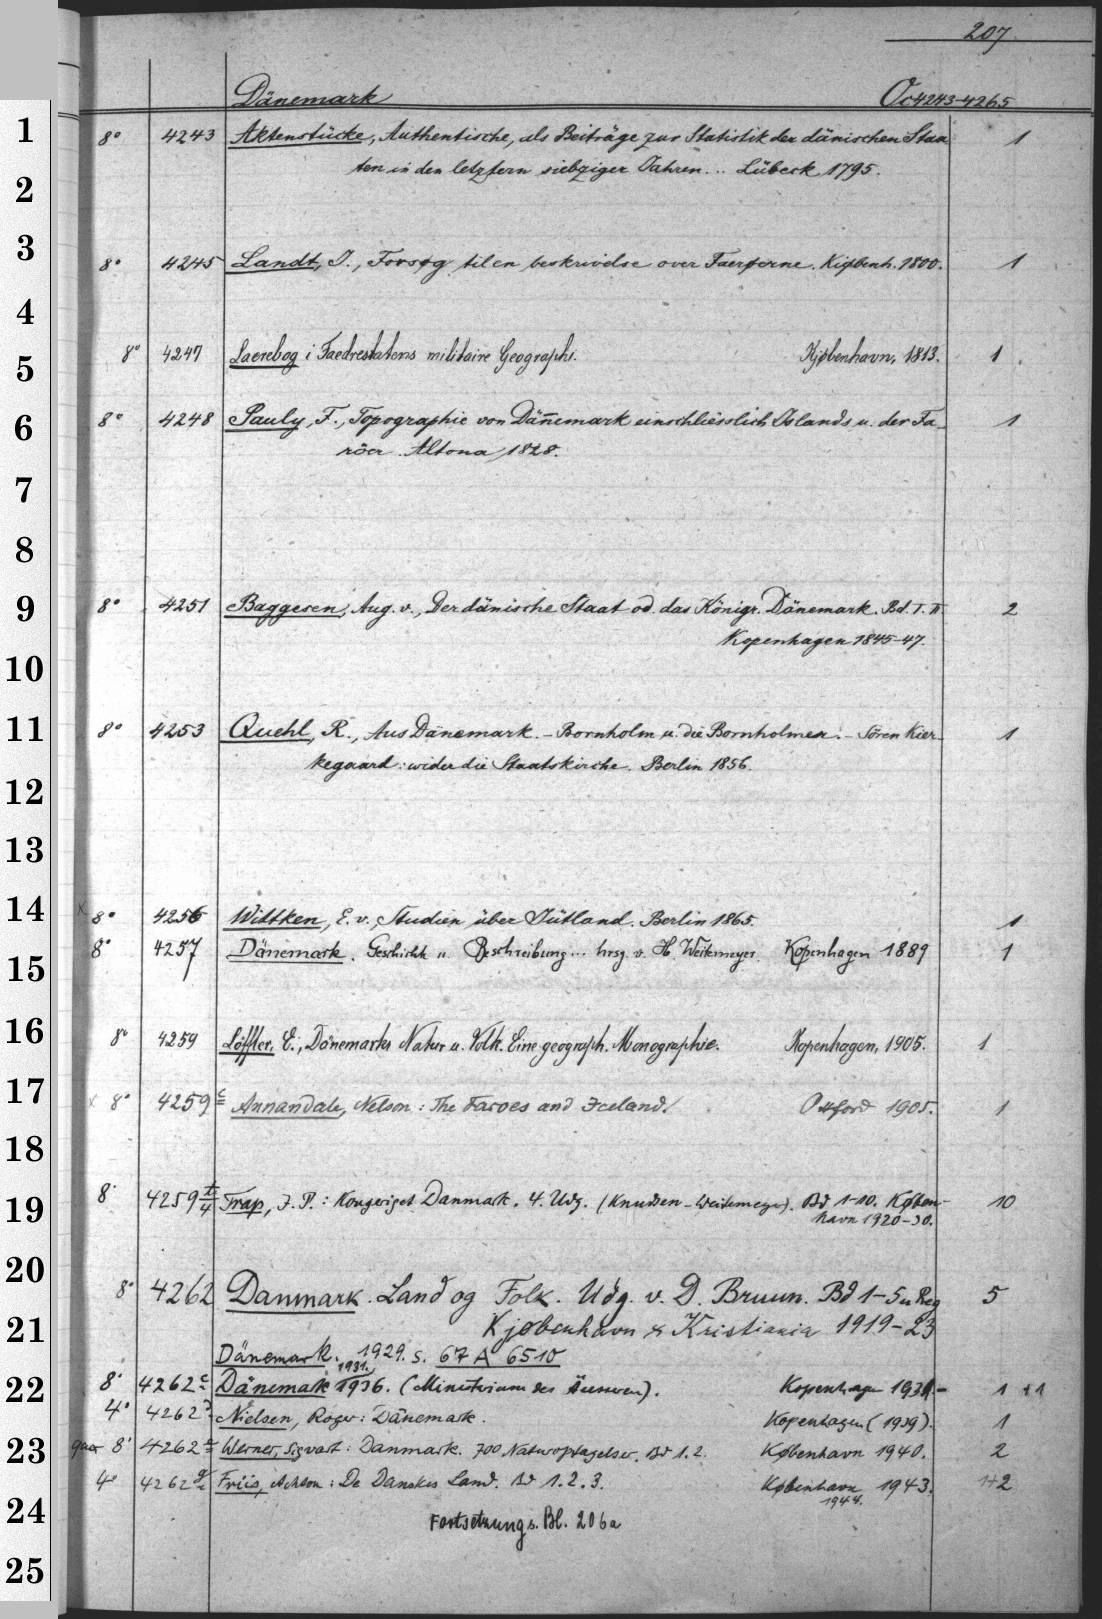 207
Dänemark Oc 4243-4265
1
8° 4243 Aktenstücke, Authentische, als Beiträge zur Statistik der dänischen Staa
ten in den letztern siebziger Jahren... Lübeck 1795. 1
2
3
8° 4245 Landt, J., Forsøg til en beskrivelse over Faerøerne. Kiøbenh. 1800. 1
4
8° 4247 Laerebog i Faedrestatens militaire Geographi. Kjøbenhavn, 1813. 1
5
6
8° 4248 Pauly, F., Topographie von Dänemark einschliesslich Islands u. der Fa-
röer. Altona 1828. 1
7
8
9
8° 4251 Baggesen, Aug. v., Der dänische Staat od. das Königr. Dänemark. Bd. I. II
Kopenhagen 1845-47. 2
10
11
8° 4253 Quehl, R., Aus Dänemark. - Bornholm u. die Bornholmer. - Sören Kier-
kegaard: wider die Staatskirche. Berlin 1856. 1
12
13
14
x 8° 4256 Wittken, E. v., Studien über Jütland. Berlin 1865. 1
8° 4257 Dänemark. Geschichte u. Beschreibung... hrsg. v. H. Weitemeyer. Kopenhagen 1889 1
15
16
8° 4259 Löffler, E., Dänemarks Natur u. Volk. Eine geograph. Monographie. Kopenhagen, 1905. 1
17
x 8° 4259 c Annandale, Nelson: The Faroes and Iceland. Oxford 1905. 1
18
19
8° 4259 t/4 Trap, J. P.: Kongeriget Danmark. 4. Udg. (Knudsen - Weitemeyer). Bd 1-10. Køben-
havn 1920-30. 10
20
8° 4262 Danmark. Land og Folk. Udg. v. D. Bruun. Bd 1-5 u Reg
Kjøbenhavn & Kristiania 1919-23 5
21
Dänemark. 1929. s. 67 A 6510
1931.
22
8° 4262 c Dänemark 1936. (Ministerium des Äussern). Kopenhagen 1931- 1 +1
4° 4262 Nielsen, Roger: Dänemark. Kopenhagen (1939). 1
23
quer 8° 4262 e Werner, Sigvart: Danmark. 700 Naturoptagelser. Bd 1. 2. København 1940. 2
4° 4262 g Friis, Achton: De Danskes Land. Bd 1. 2. 3. København 1943. 1+2
1944.
24
Fortsetzung s. Bl. 206a
25